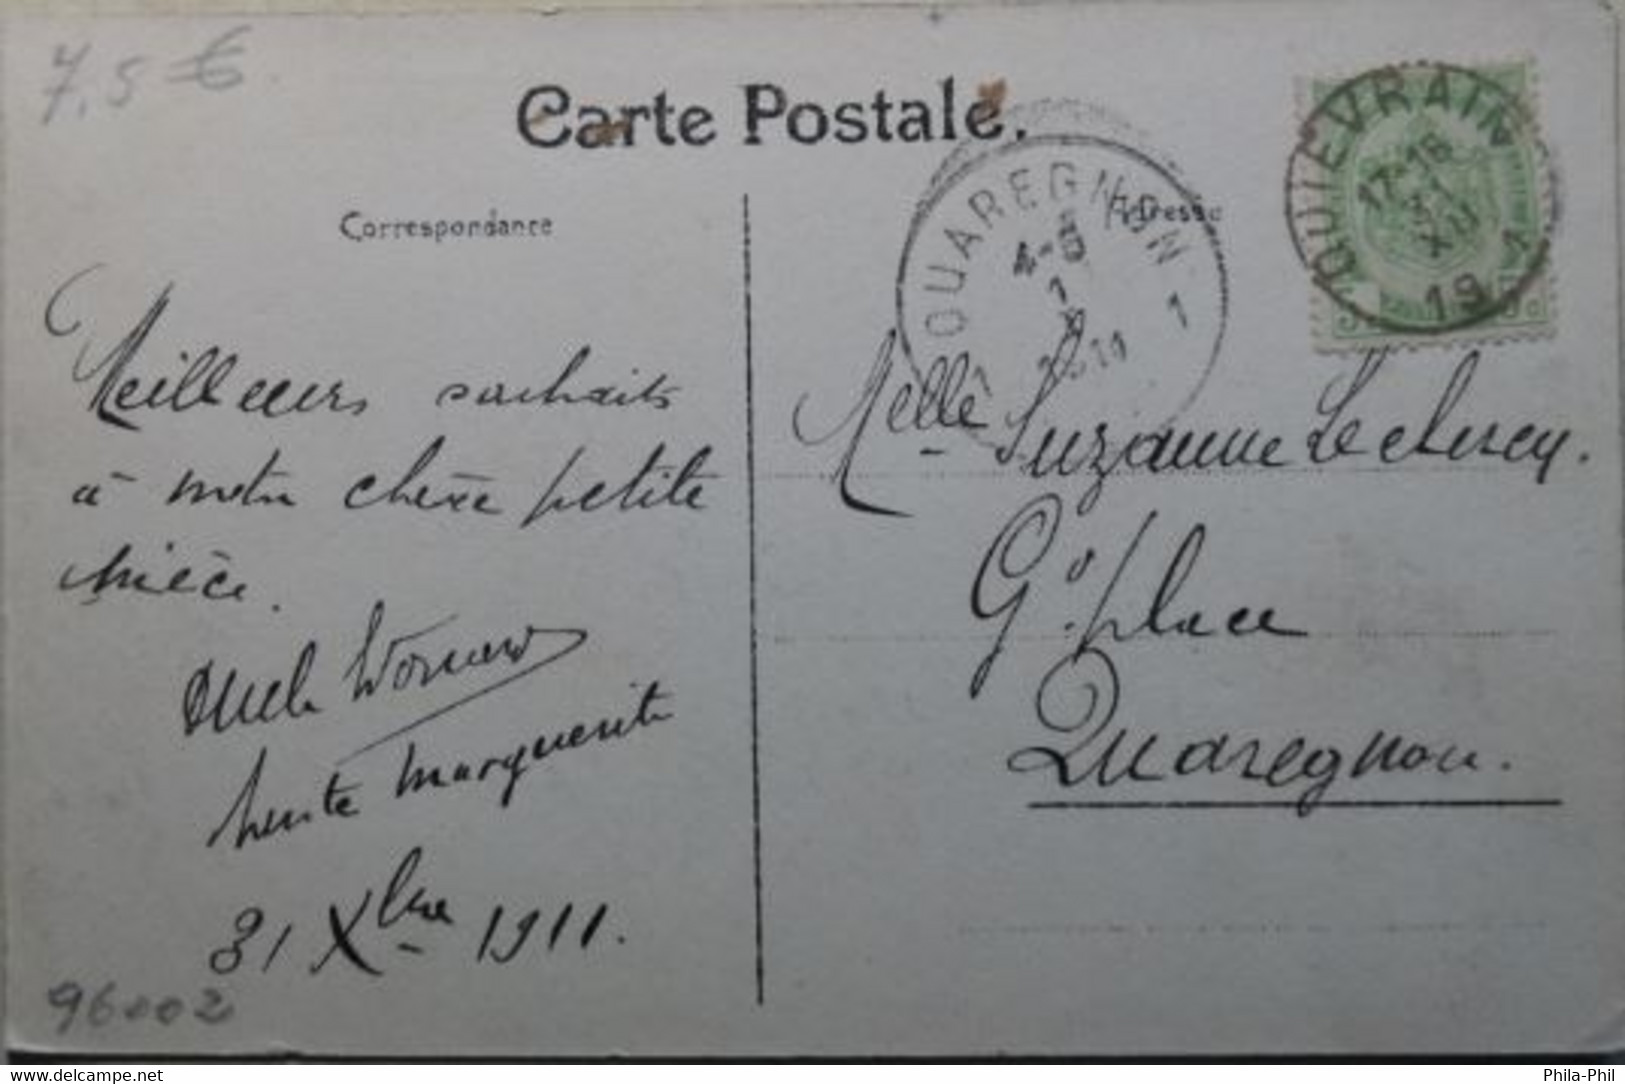 7,5 €
Carte Postale.
Correspondance
Adresse
QUAREGNON
4-5
1
1
QUIEVRAIN
17-18
31
XII
19
Meilleurs souhaits
à notre chère petite
nièce.
Oncle
tante Marguerite
31 Xbre 1911.
Melle Suzanne Leclercq.
Gd place
Quaregnon.
96002
delcampe.net
Phila-Phil